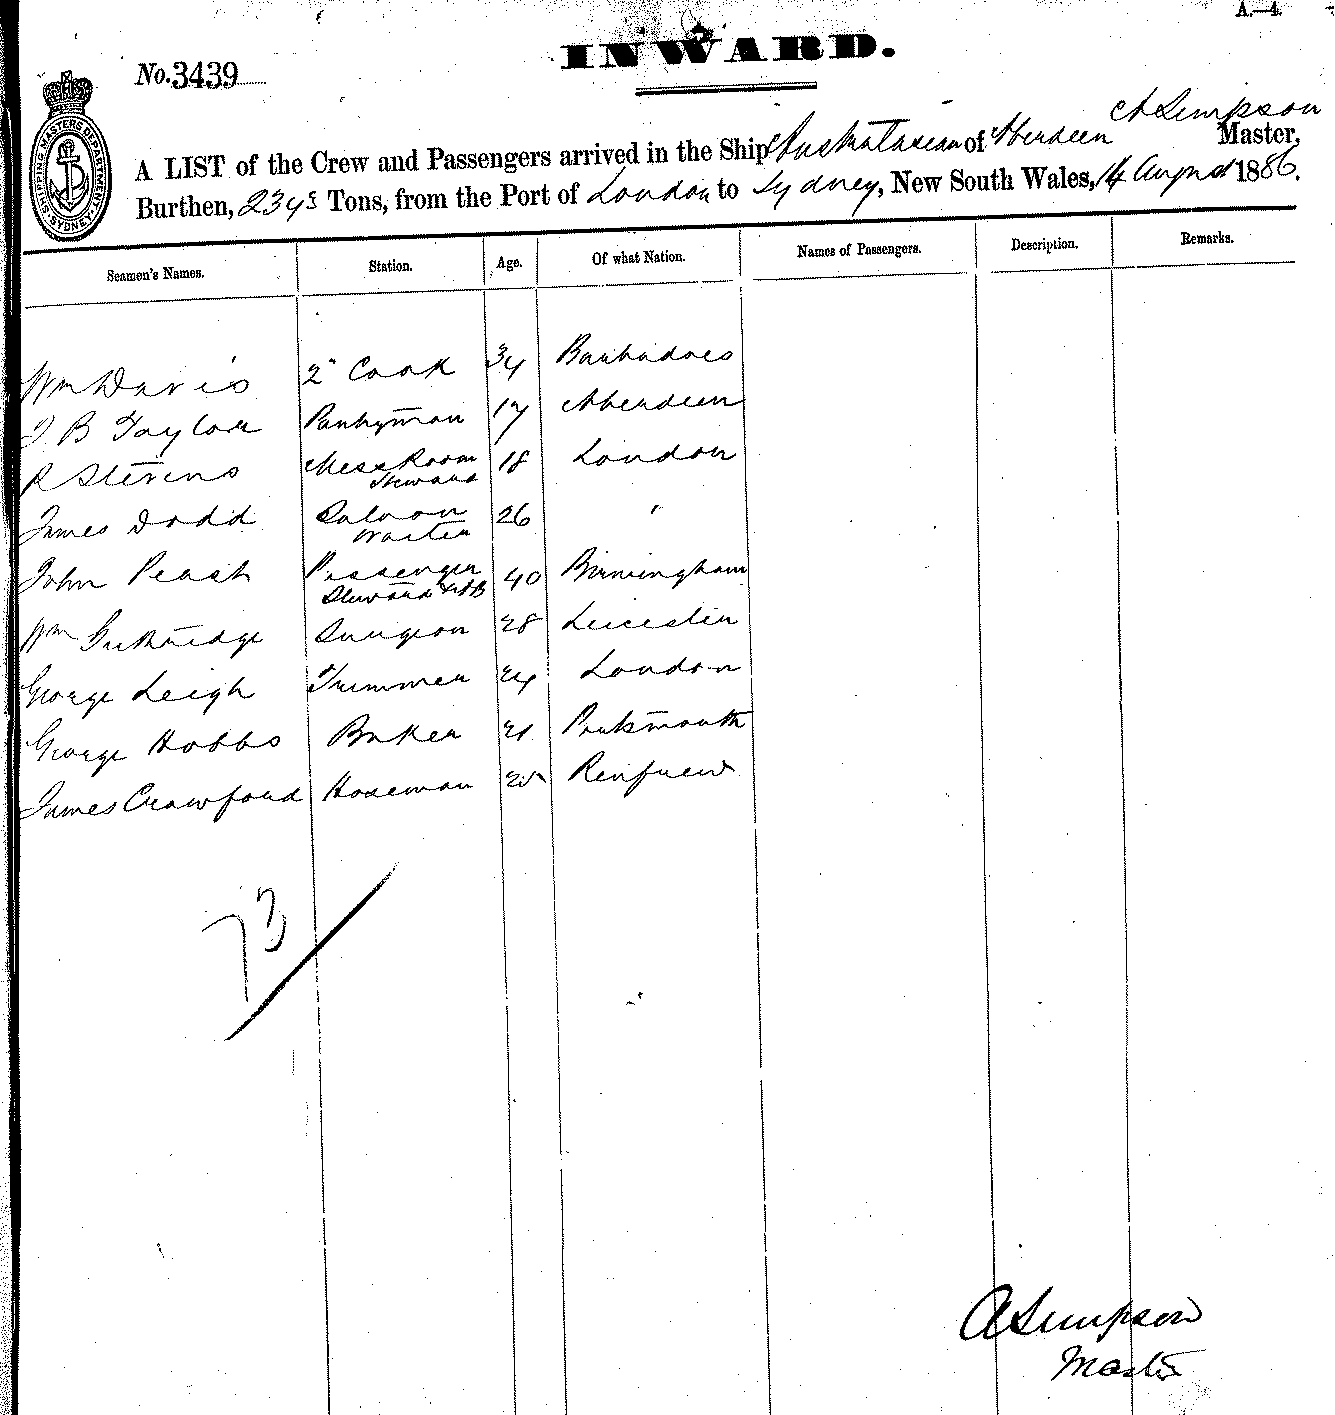 A.—4.
INWARD.
No. 3439
SHIPPING MASTERS DEPARTMENT SYDNEY
A Simpson
A LIST of the Crew and Passengers arrived in the Ship Australasian of Aberdeen Master,
Burthen, Tons, from the Port of London to Sydney, New South Wales, 14 August 1886.
Seamen's Names. Station. Age. Of what Nation. Names of Passengers. Description. Remarks.
Wm Davis 2" Cook 34 Barbadoes
J B Taylor Pantryman 17 Aberdeen
R Stevens Mess Room Steward 18 London
James Dodd Saloon Waiter 26 "
John Peash Passenger Steward 40 Birmingham
Wm Guthridge Surgeon 28 Leicester
George Leigh Trimmer 24 London
George Hobbs Baker 21 Portsmouth
James Crawford Hoseman Renfrew
73
A Simpson
Master